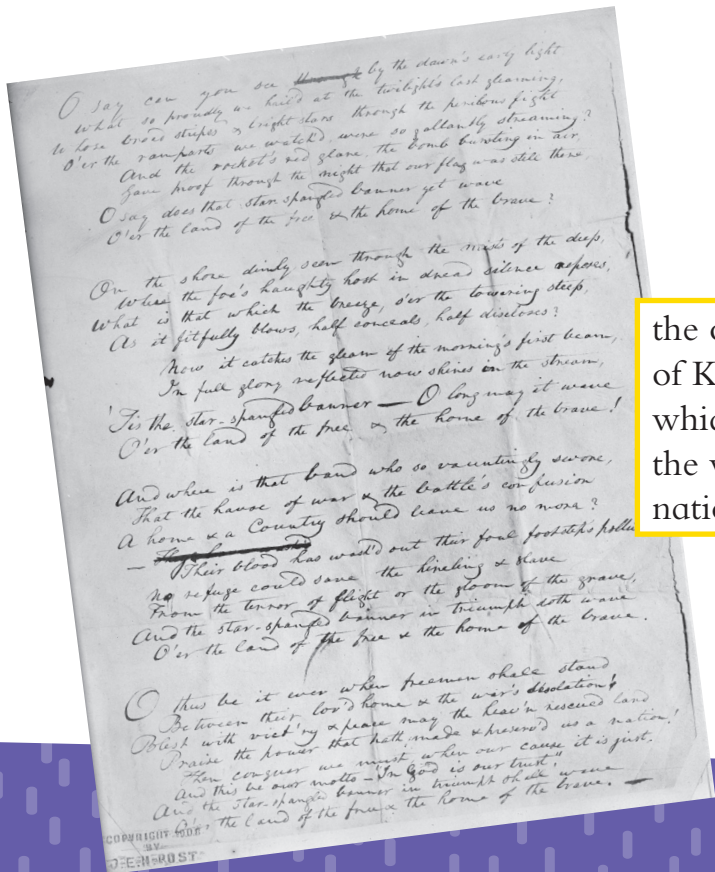 O say can you see through by the dawn's early light
What so proudly we hail'd at the twilight's last gleaming,
Whose broad stripes & bright stars through the perilous fight
O'er the ramparts we watch'd, were so gallantly streaming?
And the rocket's red glare, the bomb bursting in air,
Gave proof through the night that our flag was still there,
O say does that star-spangled banner yet wave
O'er the land of the free & the home of the brave?
On the shore dimly seen through the mists of the deep,
Where the foe's haughty host in dread silence reposes,
What is that which the breeze, o'er the towering steep,
As it fitfully blows, half conceals, half discloses?
Now it catches the gleam of the morning's first beam,
In full glory reflected now shines in the stream,
'Tis the star-spangled banner — O long may it wave
O'er the land of the free & the home of the brave!
And where is that band who so vauntingly swore,
That the havoc of war & the battle's confusion
A home & a Country should leave us no more?
— Their blood has wash'd out their foul footsteps pollu
No refuge could save the hireling & slave
From the terror of flight or the gloom of the grave,
And the star-spangled banner in triumph doth wave
O'er the land of the free & the home of the brave.
O thus be it ever when freemen shall stand
Between their lov'd home & the war's desolation!
Blest with vict'ry & peace may the heav'n rescued land
Praise the power that hath made & preserv'd us a nation!
Then conquer we must, when our cause it is just,
And this be our motto — "In God is our trust,"
And the star-spangled banner in triumph shall wave
O'er the land of the free & the home of the brave. —
COPYRIGHT
BY
J.E.H. POST
the
of K
whic
the
natio